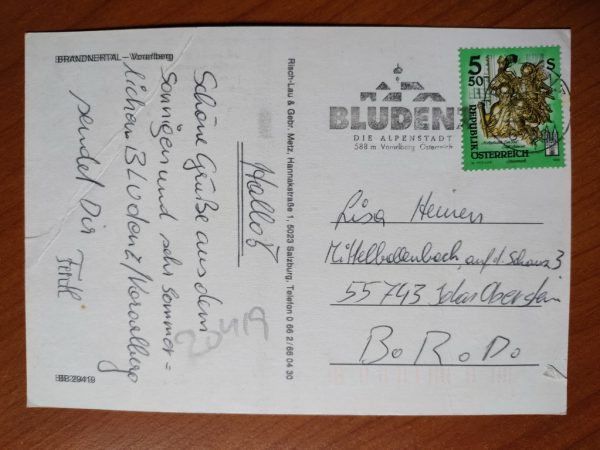 BRANDNERTAL – Vorarlberg
Hallo!
Schöne Grüße aus dem
sonnigen und sehr sommer=
lichem BLUdenz/Vorarlberg
sendet Dir
BB 29419
20419
Risch-Lau & Gebr. Metz, Hannakstraße 1, 5023 Salzburg, Telefon 0 66 2/66 04 30
BLUDENZ
DIE ALPENSTADT
588 m Vorarlberg Österreich
5 50 S
REPUBLIK
ÖSTERREICH
Lisa Heinen
Mittelbollenbach, auf d. Schanz 3
55743 Idar Oberstein
B.R.D.